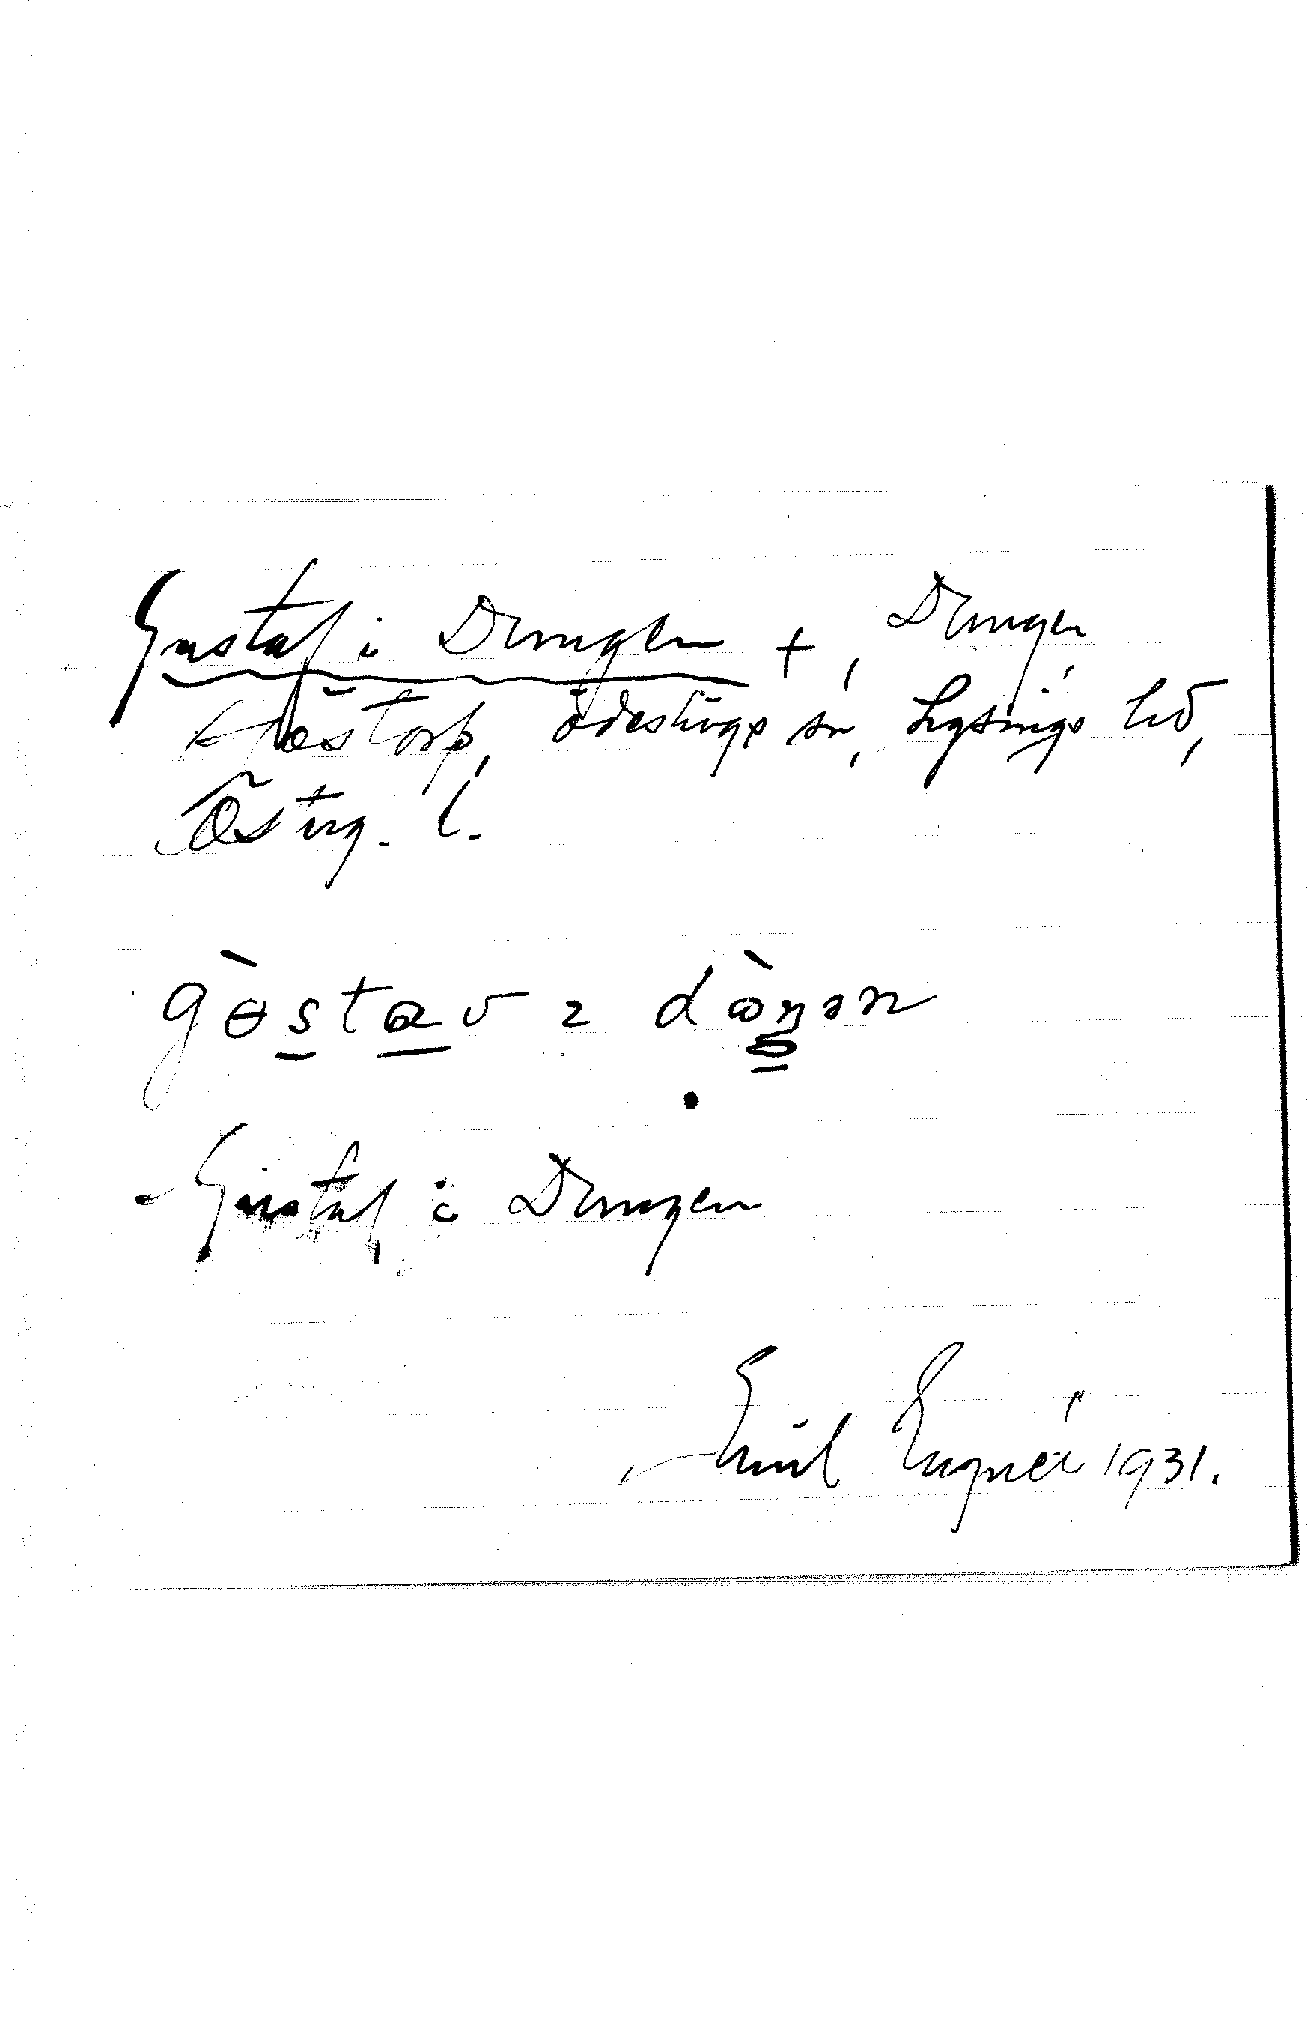 Gustaf i Dungen +, Dungen,
Höstorp, Ödeshögs sn, Lysings hd,
Österg. l.
gɵ̀stav ı dòŋən
Gustaf i Dungen
Emil Lagnér 1931.